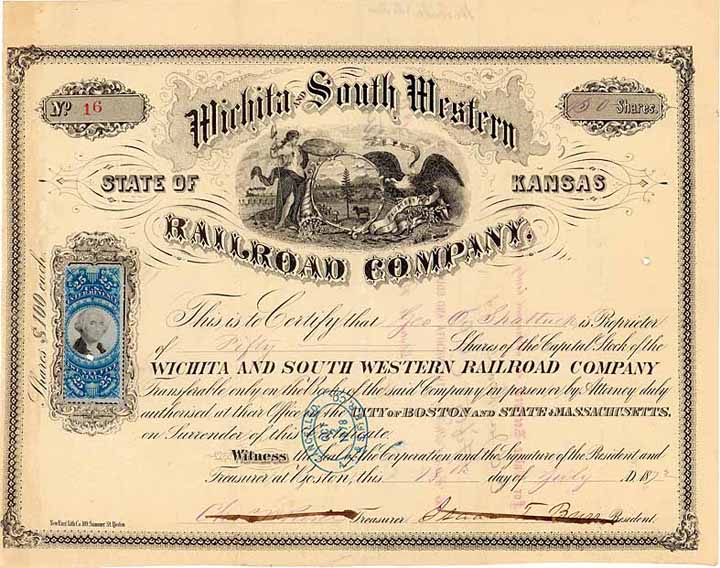 No 16
Wichita AND South Western
50 Shares.
STATE OF KANSAS
RAILROAD COMPANY.
Shares $100 each.
25 25
25 25
This is to Certify that Geo O. Shattuck is Proprietor
of Fifty Shares of the Capital Stock of the
WICHITA AND SOUTH WESTERN RAILROAD COMPANY
Transferable only on the Books of the said Company in person or by Attorney duly
authorised at their Office in the CITY OF BOSTON AND STATE OF MASSACHUSETTS.
on Surrender of this Certificate.
Witness the Seal of the Corporation and the Signature of the President and
Treasurer at Boston, this 18th day of July A.D. 1872
Treasurer President
New Engd. Lith. Co. 109, Summer St. Boston
CANCELLED